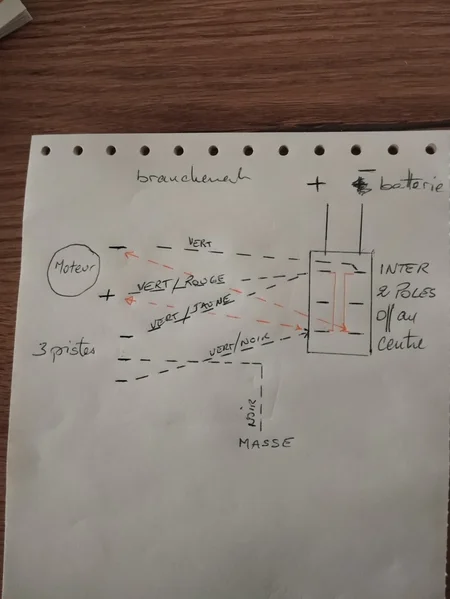 branchement
+ - batterie
VERT
Moteur
-
+
VERT/ROUGE
VERT/JAUNE
INTER
2 POLES
Off au
Centre
3 pistes
VERT/NOIR
NOIR
MASSE